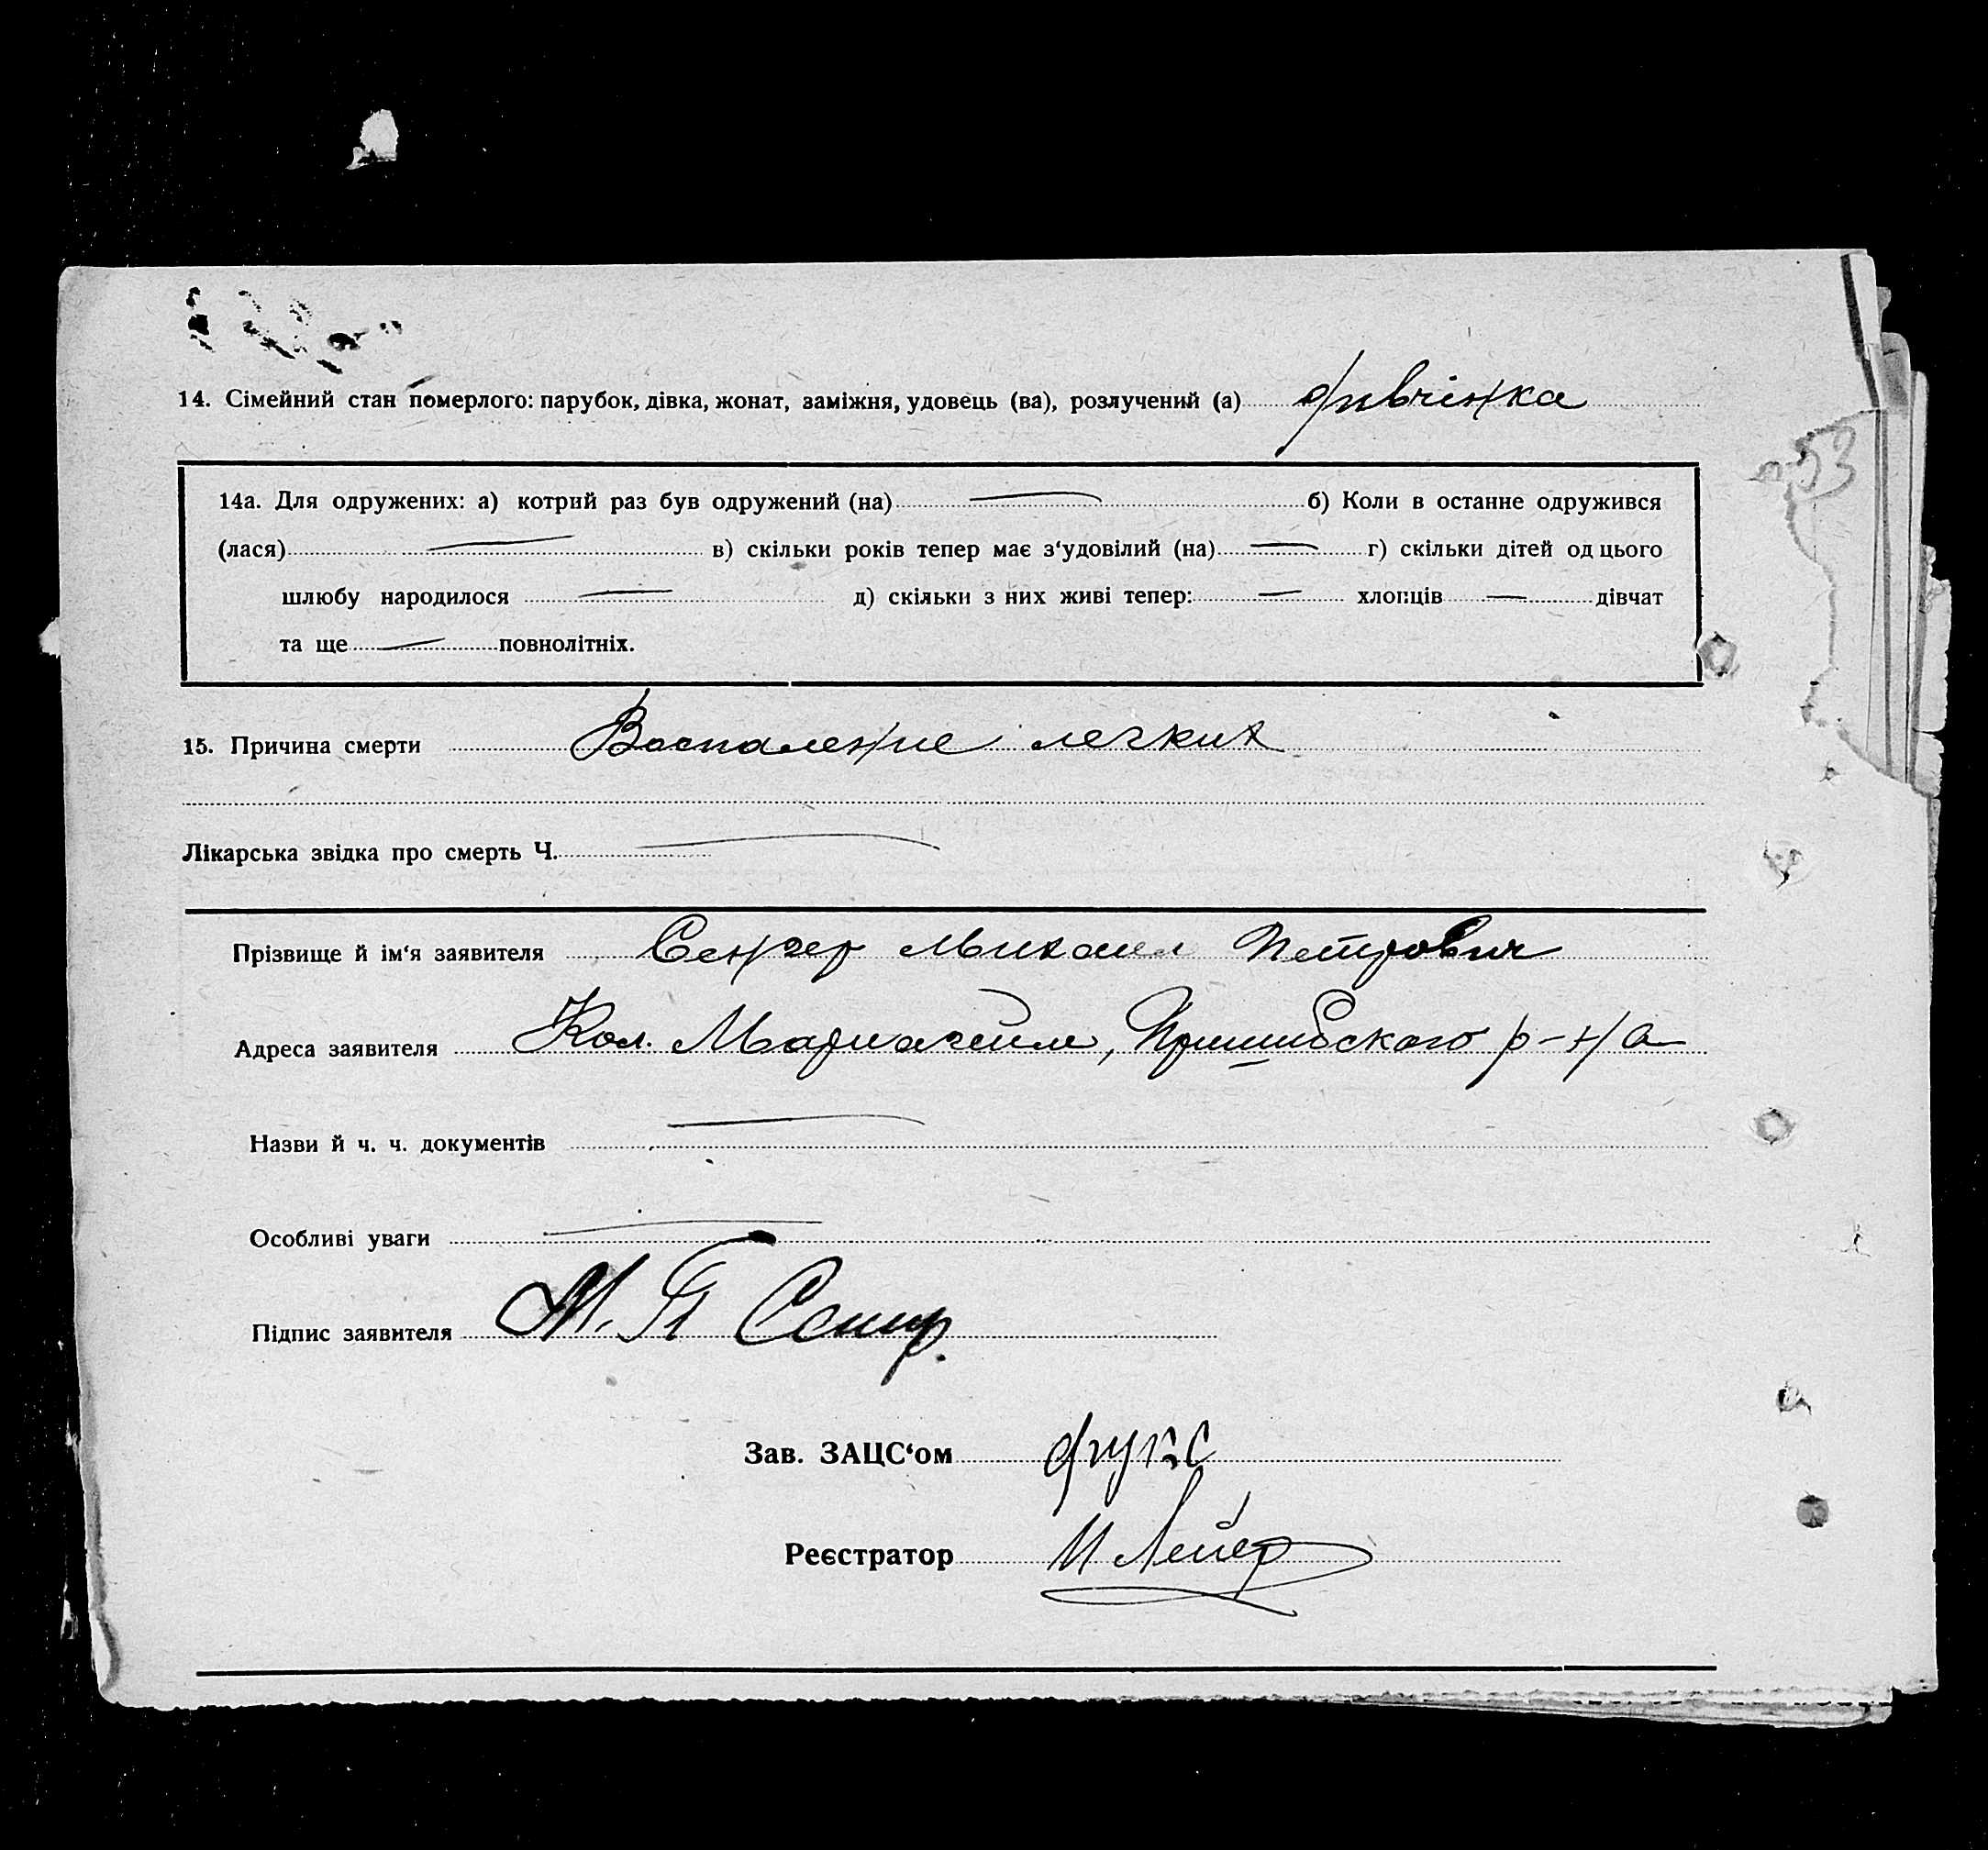 14. Сімейний стан померлого: парубок, дівка, жонат, заміжня, удовець (ва), розлучений (а) дивчінка
14а. Для одружених: а) котрий раз був одружений (на) — б) Коли в останне одружився
(лася) — в) скільки років тепер має з‘удовілий (на) — г) скільки дітей од цього
шлюбу народилося — д) скільки з них живі тепер: — хлопців — дівчат
та ще — повнолітніх.
53
15. Причина смерти Воспаление легких
Лікарська звідка про смерть Ч. —
Прізвище й ім‘я заявителя Сенгер Михаил Петрович
Адреса заявителя Кол. Мариагейм, Пришибского р-на
Назви й ч. ч. документів —
Особливі уваги —
Підпис заявителя М. П Сенгр.
Зав. ЗАЦС‘ом Фукс
Реєстратор И Лейер